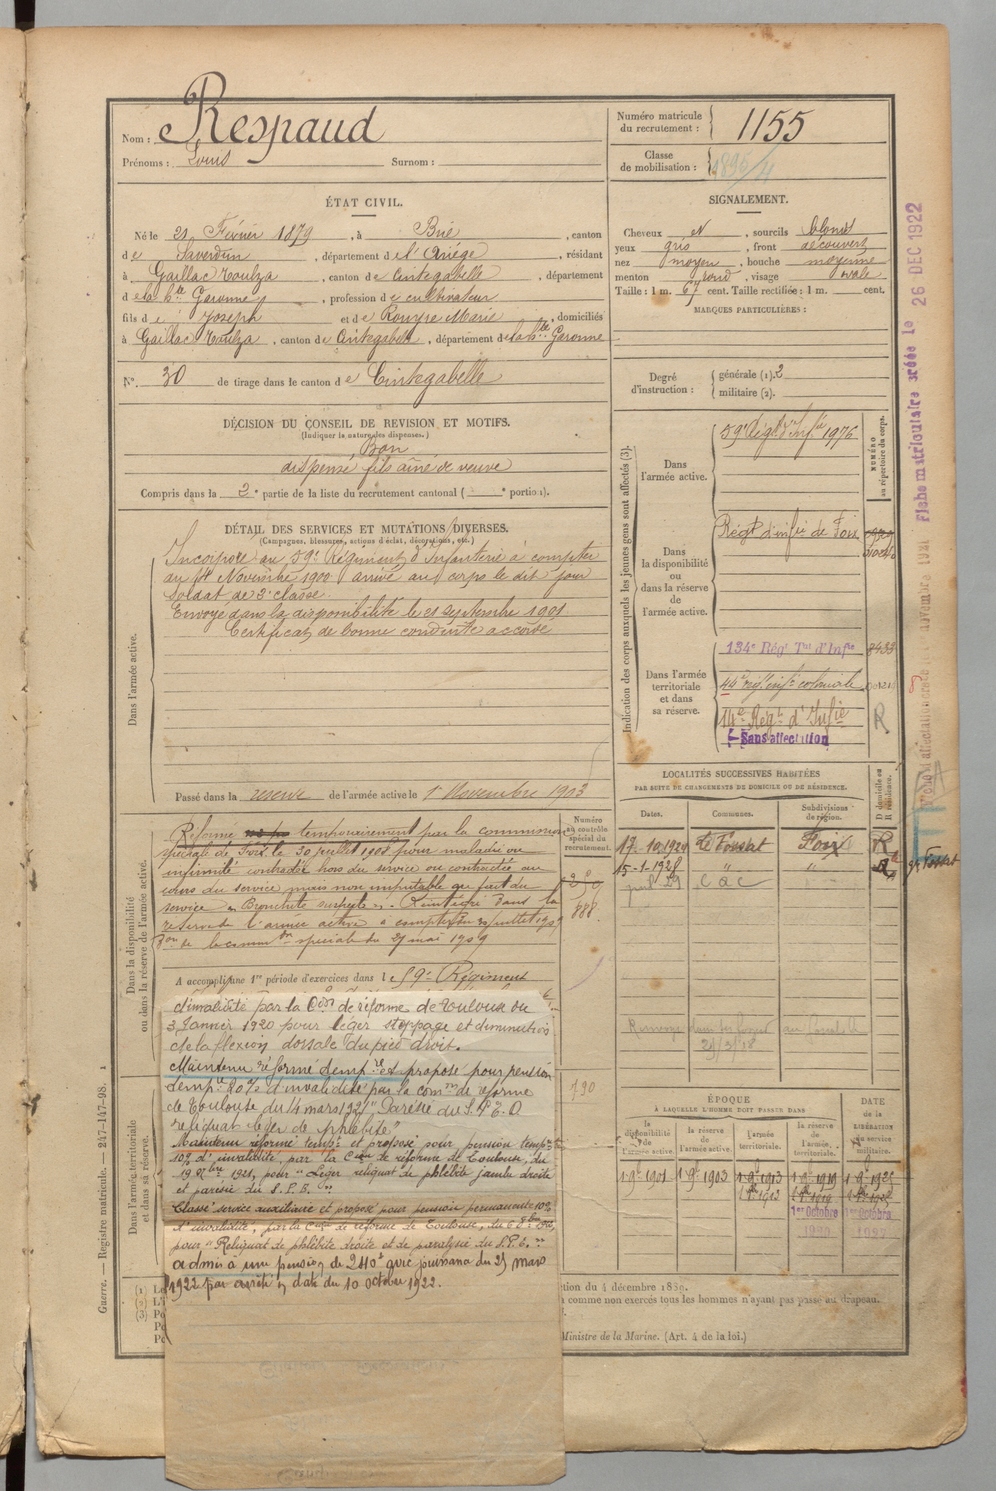 Nom : Respaud
Prénoms : Louis Surnom :
Numéro matricule du recrutement : 1155
Classe de mobilisation :
ÉTAT CIVIL.
Né le 21 Février 1879, à Brie, canton
de Saverdun, département de l'Ariége, résidant
à Gaillac Toulza, canton de Cintegabelle, département
de la hte Garonne, profession de cultivateur
fils de Joseph et de Rouyre Marie, domiciliés
à Gaillac Toulza, canton de Cintegabelle, département de la hte Garonne
N° 30 de tirage dans le canton de Cintegabelle
SIGNALEMENT.
Cheveux N, sourcils blond
yeux gris, front découvert
nez moyen, bouche moyenne
menton rond, visage ovale
Taille : 1 m. 67 cent. Taille rectifiée : 1 m. cent.
MARQUES PARTICULIÈRES :
Degré d'instruction : générale (1). 2
militaire (2).
DÉCISION DU CONSEIL DE REVISION ET MOTIFS.
(Indiquer la nature des dispenses.)
Bon
dispensé fils aîné de veuve
Compris dans la 2e partie de la liste du recrutement cantonal ( e portion).
DÉTAIL DES SERVICES ET MUTATIONS DIVERSES.
(Campagnes, blessures, actions d'éclat, décorations, etc.)
Dans l'armée active.
Incorporé au 59e Régiment d'Infanterie à compter
du 14 Novembre 1900 arrivé au corps le dit jour
Soldat de 2e classe.
Envoyé dans la disponibilité le 21 septembre 1901
Certificat de bonne conduite accordé
Passé dans la réserve de l'armée active le 1er Novembre 1903
Indication des corps auxquels les jeunes gens sont affectés (3).
NUMÉRO au répertoire du corps.
Dans l'armée active.
59e Régt d'Infie 1976
Dans la disponibilité ou dans la réserve de l'armée active.
Régt d'infie de Foix
Dans l'armée territoriale et dans sa réserve.
134e Régt Tal d'Infie 8433
44e régt infie coloniale
14e Régt d'Infie R
Sans affectation
Fiche matriculaire créée le 26 DEC 1922
LOCALITÉS SUCCESSIVES HABITÉES
PAR SUITE DE CHANGEMENTS DE DOMICILE OU DE RÉSIDENCE.
Dates. Communes. Subdivisions de région. D domicile ou R résidence.
17.10.1920 Le Fossat Foix R
15-1-1928 " " R
Dans la disponibilité ou dans la réserve de l'armée active.
Numéro au contrôle spécial du recrutement.
Réformé temporairement par la commission
spéciale de Foix le 30 juillet 1908 pour maladie ou
infirmité contractée hors du service ou contractée au
cours du service mais non imputable au fait du
service « Bronchite suspecte ». Réintégré dans la
réserve de l'armée active à compter du
de la common spéciale du 27 mai 1909
888
A accompli une 1re période d'exercices dans le 59e Régiment
d'invalidité par la Con de réforme de Toulouse du
3 Janvier 1920 pour léger steppage et diminution
de la flexion dorsale du pied droit.
Maintenu réformé tempre et proposé pour pension
tempre 20% d'invalidité par la comon de réforme
de Toulouse du 14 mars 1921 "Parésie du S.P.E. D
reliquat léger de phlébite"
Maintenu réformé tempre et proposé pour pension tempre
10% d'invalidité, par la Con de réforme de Toulouse, du
19 8bre 1921, pour "Léger reliquat de phlébite jambe droite
et parésie du S.P.E. "
Classé service auxiliaire et proposé pour pension permanente 10%
d'invalidité, par la Con de réforme de Toulouse, du
pour "Reliquat de phlébite droite et de paralysie du S.P.E. "
admis à une pension de 240f avec jouissance du 25 mars
1922 par arrêté en date du 10 octobre 1922.
790
Dans l'armée territoriale et dans sa réserve.
ÉPOQUE À LAQUELLE L'HOMME DOIT PASSER DANS
la disponibilité de l'armée active. la réserve de l'armée active. l'armée territoriale. la réserve de l'armée territoriale.
DATE de la LIBÉRATION du service militaire.
1 9e 1901 1 9e 1903 1 9e 1913 1 9e 1919 1 9e 1925
1er Octobre
Guerre. — Registre matricule. — 247-147-98.
(1)
(2)
(3)
tion du 4 décembre 1889.
comme non exercés tous les hommes n'ayant pas passé au drapeau.
Ministre de la Marine. (Art. 4 de la loi.)